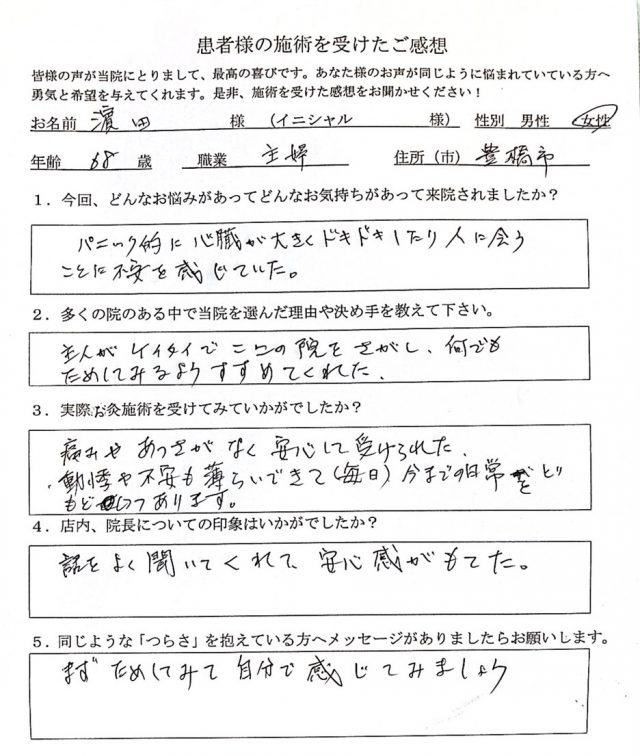 患者様の施術を受けたご感想
皆様の声が当院にとりまして、最高の喜びです。あなた様のお声が同じように悩まれていている方へ
勇気と希望を与えてくれます。是非、施術を受けた感想をお聞かせください！
お名前 濵田 様 （イニシャル 様） 性別 男性 女性
年齢 68 歳 職業 主婦 住所（市） 豊橋市
1．今回、どんなお悩みがあってどんなお気持ちがあって来院されましたか？
パニック的に心臓が大きくドキドキしたり人に会う
ことに不安を感じていた。
2．多くの院のある中で当院を選んだ理由や決め手を教えて下さい。
主人がケイタイでここの院をさがし、何でも
ためしてみるようすすめてくれた、
3．実際お灸施術を受けてみていかがでしたか？
痛みやあつさがなく安心して受けられた、
動悸や不安も薄らいできて(毎日)今までの日常をとり
もどしつつあります。
4．店内、院長についての印象はいかがでしたか？
話をよく聞いてくれて、安心感がもてた。
5．同じような「つらさ」を抱えている方へメッセージがありましたらお願いします。
まずためしてみて自分で感じてみましょう